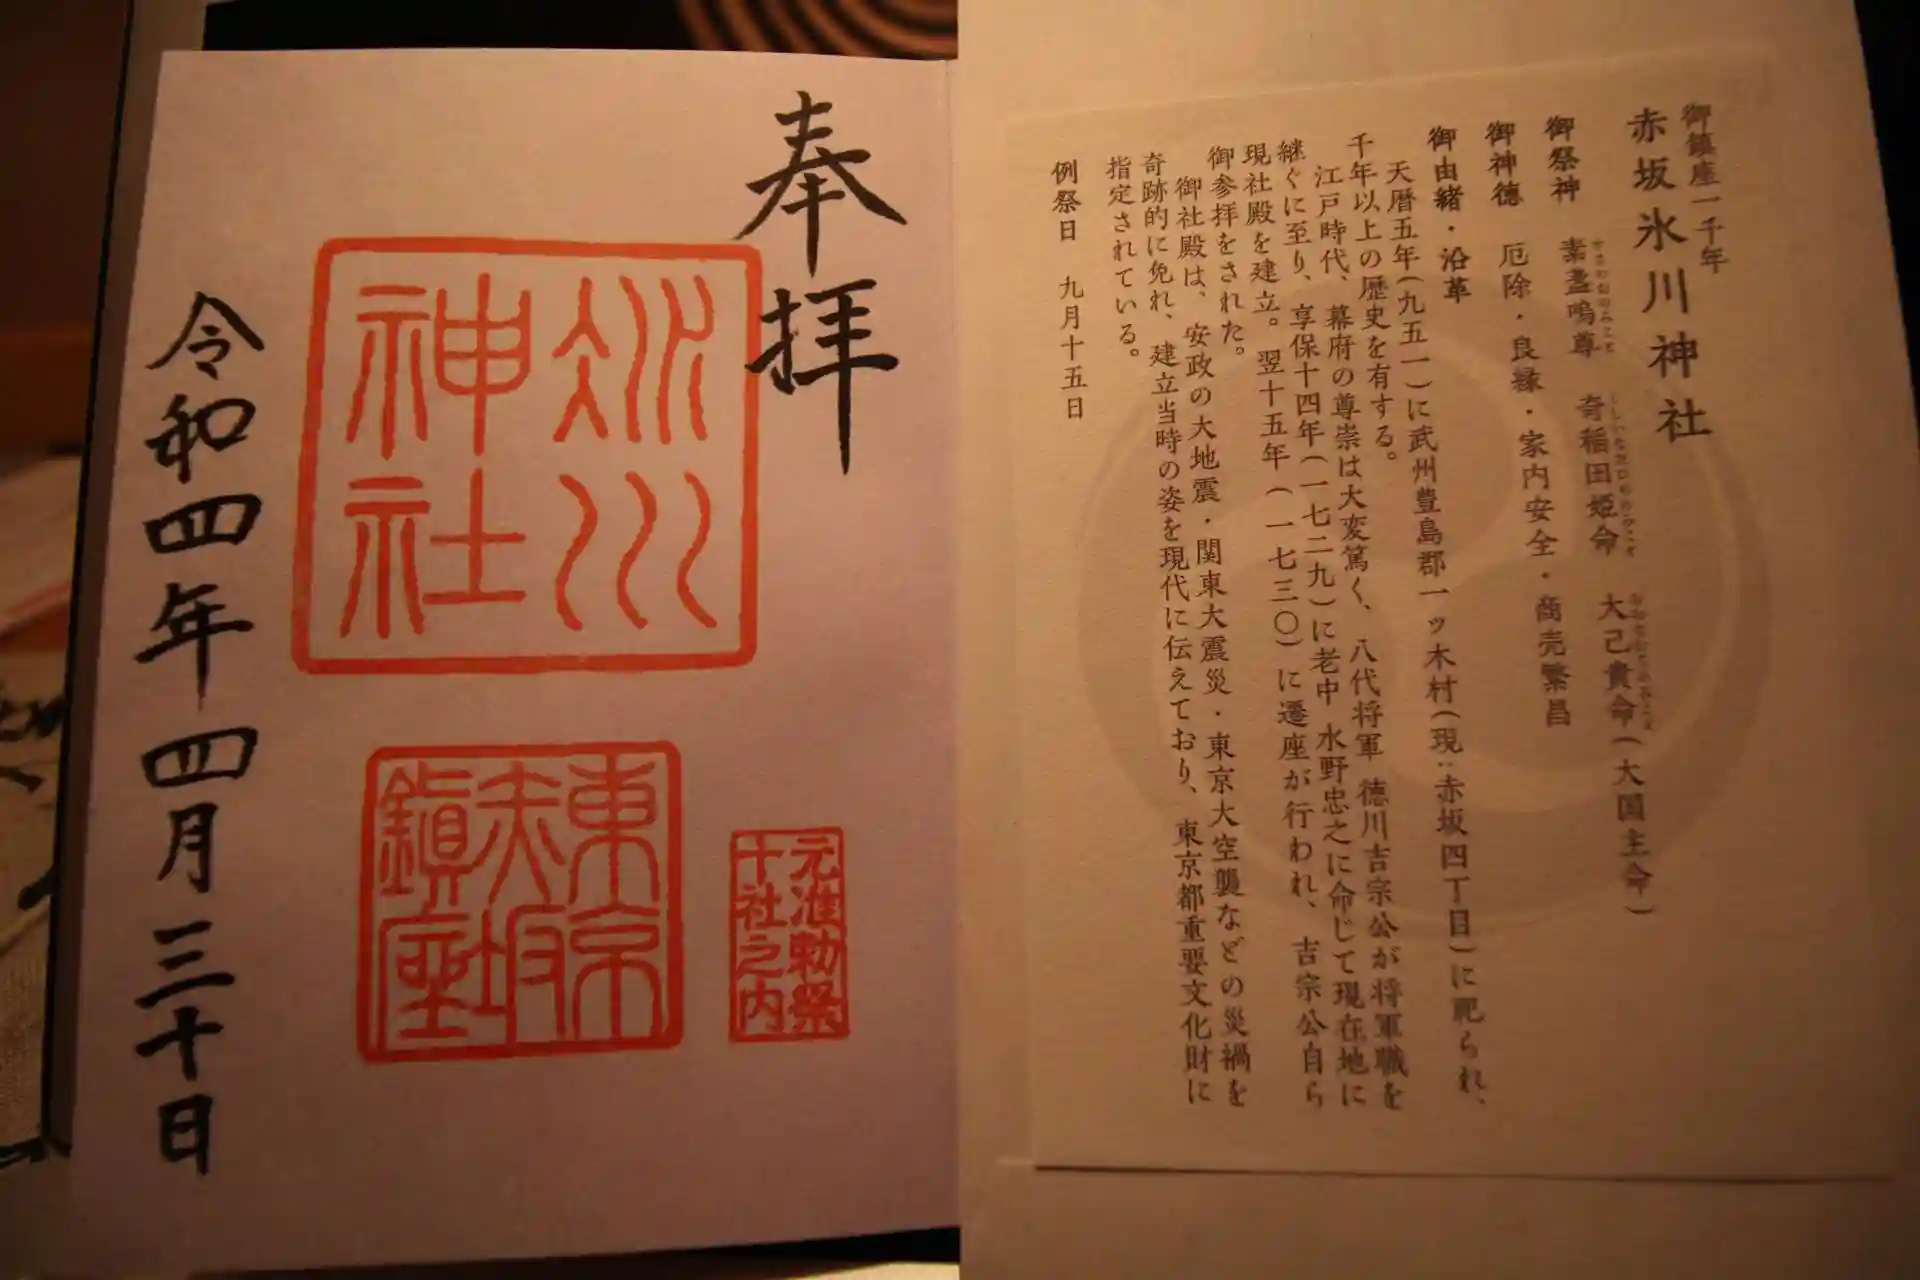 御鎮座一千年
赤坂氷川神社
御祭神 素盞嗚尊 奇稲田姫命 大己貴命(大国主命)
すさのおのみこと くしいなだひめのみこと おおなむぢのみこと
御神徳 厄除・良縁・家内安全・商売繁昌
御由緒・沿革
天暦五年(九五一)に武州豊島郡一ツ木村(現:赤坂四丁目)に祀られ、
千年以上の歴史を有する。
江戸時代、幕府の尊崇は大変篤く、八代将軍 徳川吉宗公が将軍職を
継ぐに至り、享保十四年(一七二九)に老中 水野忠之に命じて現在地に
現社殿を建立。翌十五年(一七三〇)に遷座が行われ、吉宗公自ら
御参拝をされた。
御社殿は、安政の大地震・関東大震災・東京大空襲などの災禍を
奇跡的に免れ、建立当時の姿を現代に伝えており、東京都重要文化財に
指定されている。
例祭日 九月十五日
奉拝
氷川
神社
東京
赤坂
鎮座
元准勅祭
十社之内
令和四年四月三十日